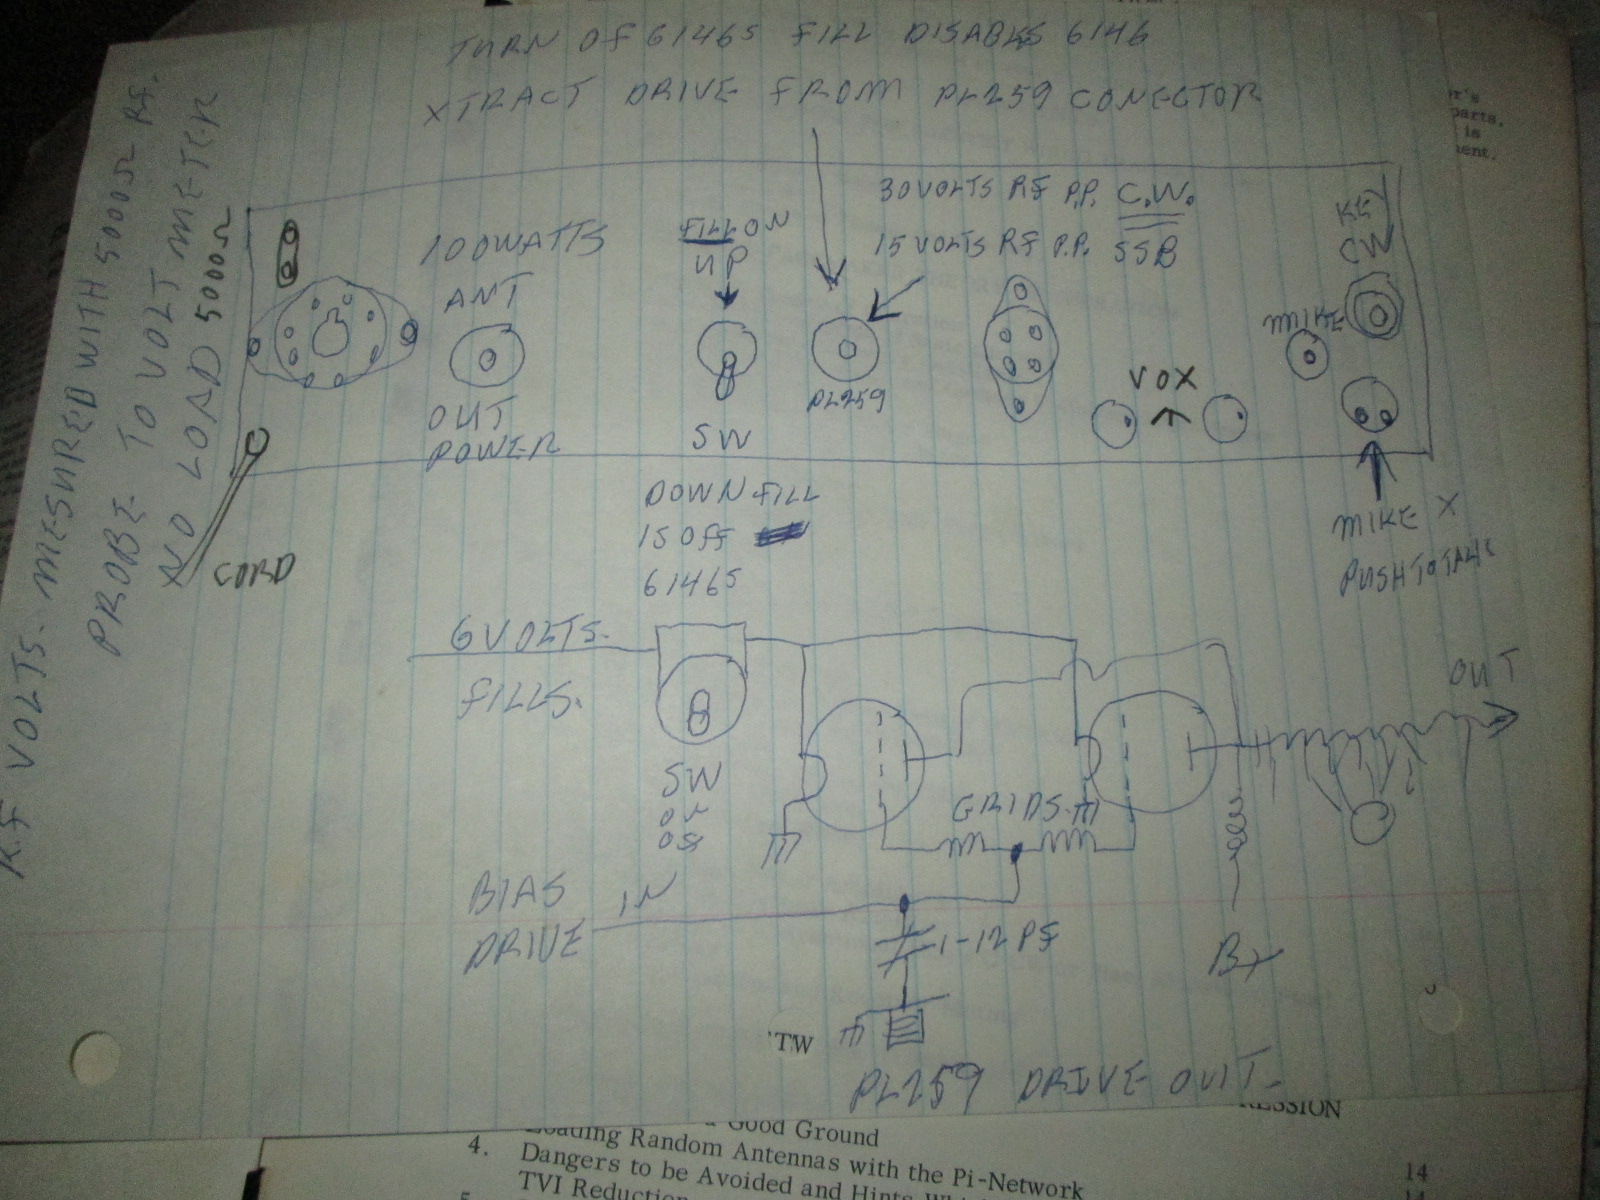 TURN OF 6146S FILL DISABLS 6146
XTRACT DRIVE FROM PL259 CONECTOR
R.F VOLTS. MESURED WITH 5000Ω RF.
PROBE TO VOLT METER
NO LOAD 5000Ω
30 VOLTS RF P.P. C.W.
15 VOLTS RF P.P. SSB
100 WATTS
ANT
OUT
POWER
FILL ON
UP
SW
PL259
VOX
MIKE
KEY
CW
MIKE X
PUSH TO TALK
CORD
DOWN FILL
IS OFF
6146S
6 VOLTS.
FILLS.
SW
OUT
GRIDS.
BIAS IN
DRIVE
1-12 PF
B+
PL259 DRIVE OUT.
TW
parts.
is
RESSION
a Good Ground
4. Loading Random Antennas with the Pi-Network 14
Dangers to be Avoided and Hints
TVI Reduction